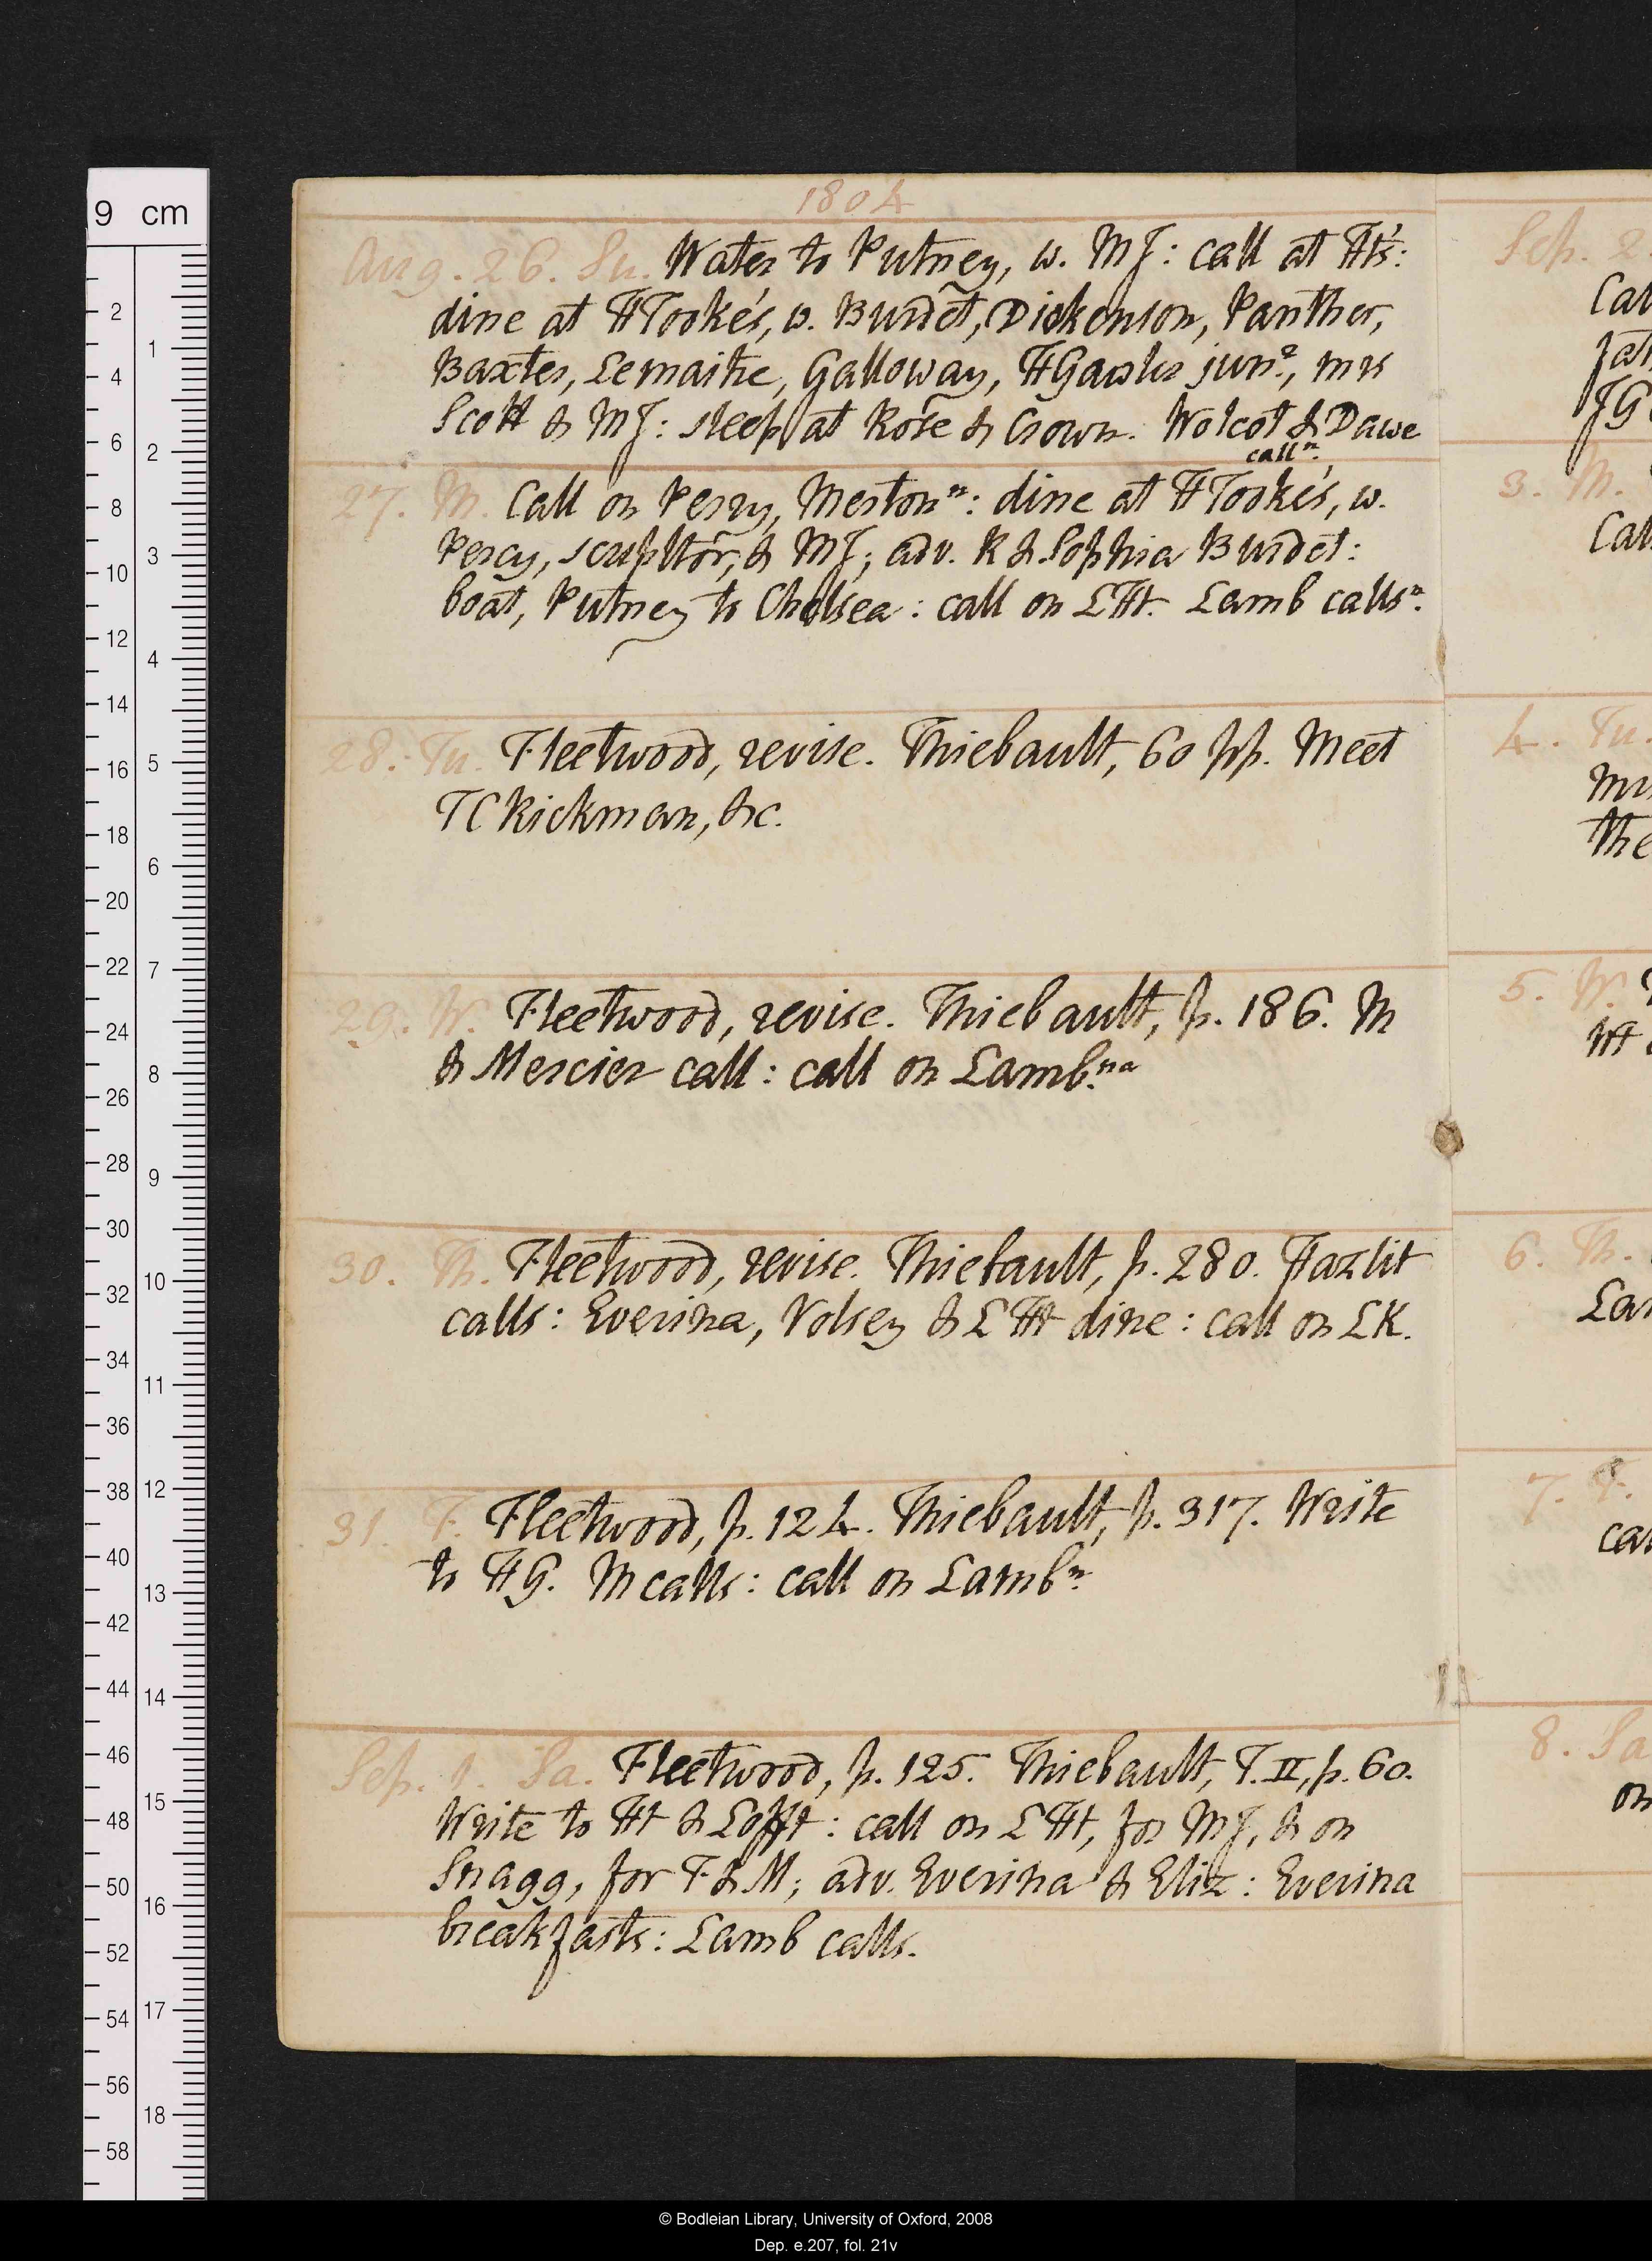 1804
Aug. 26. Su. Water to Putney, w. MJ: call at Ht's:
dine at HTooke's, w. Burdet, Dickenson, Panther,
Baxter, Lemaitre, Galloway, HGawler junr, mrs
Scott & MJ: sleep at Rose & Crown. Wolcot & Dawe
calln.
27. M. Call on Perry, Mertonn: dine at HTooke's, w.
Percy, sculptor, & MJ; adv. R & Sophia Burdet:
boat, Putney to Chelsea: call on LHt. Lamb callsn.
28. Tu. Fleetwood, revise. Thiebault, 60 pp. Meet
TCRickman, &c.
29. W. Fleetwood, revise. Thiebault, p. 186. M
& Mercier call: call on Lambna.
30. Th. Fleetwood, revise. Thiebault, p. 280. Hazlit
calls: Everina, Volsey & LHt dine: call on LK.
31. F. Fleetwood, p. 124. Thiebault, p. 317. Write
to HG. M calls: call on Lambn.
Sep. 1. Sa. Fleetwood, p. 125. Thiebault, T. II, p. 60.
Write to Ht & Lofft: call on LHt, for MJ, & on
Snagg, for F & M; adv. Everina & Eliz: Everina
breakfasts: Lamb calls.
Sep. 2.
3. M.
4. Tu.
5. W.
6. Th.
7. F.
8. Sa
9 cm
2
4
6
8
10
12
14
16
18
20
22
24
26
28
30
32
34
36
38
40
42
44
46
48
50
52
54
56
58
1
2
3
4
5
6
7
8
9
10
11
12
13
14
15
16
17
18
© Bodleian Library, University of Oxford, 2008
Dep. e.207, fol. 21v